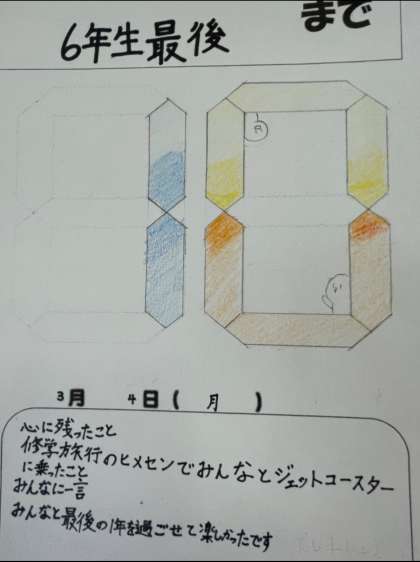 まで
6年生最後
10
3月 4日(月)
心に残ったこと
修学旅行のヒメセンでみんなとジェットコースター
に乗ったこと
みんなに一言
みんなと最後の1年を過ごせて楽しかったです